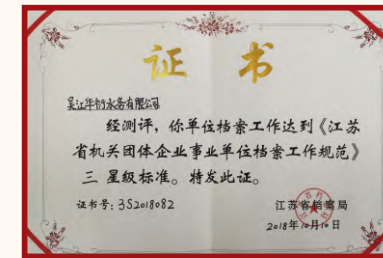 证书
吴江华衍水务有限公司
经测评，你单位档案工作达到《江苏
省机关团体企业事业单位档案工作规范》
三 星级标准。特发此证。
证书号：3S2018082
江苏省档案局
2018年10月10日